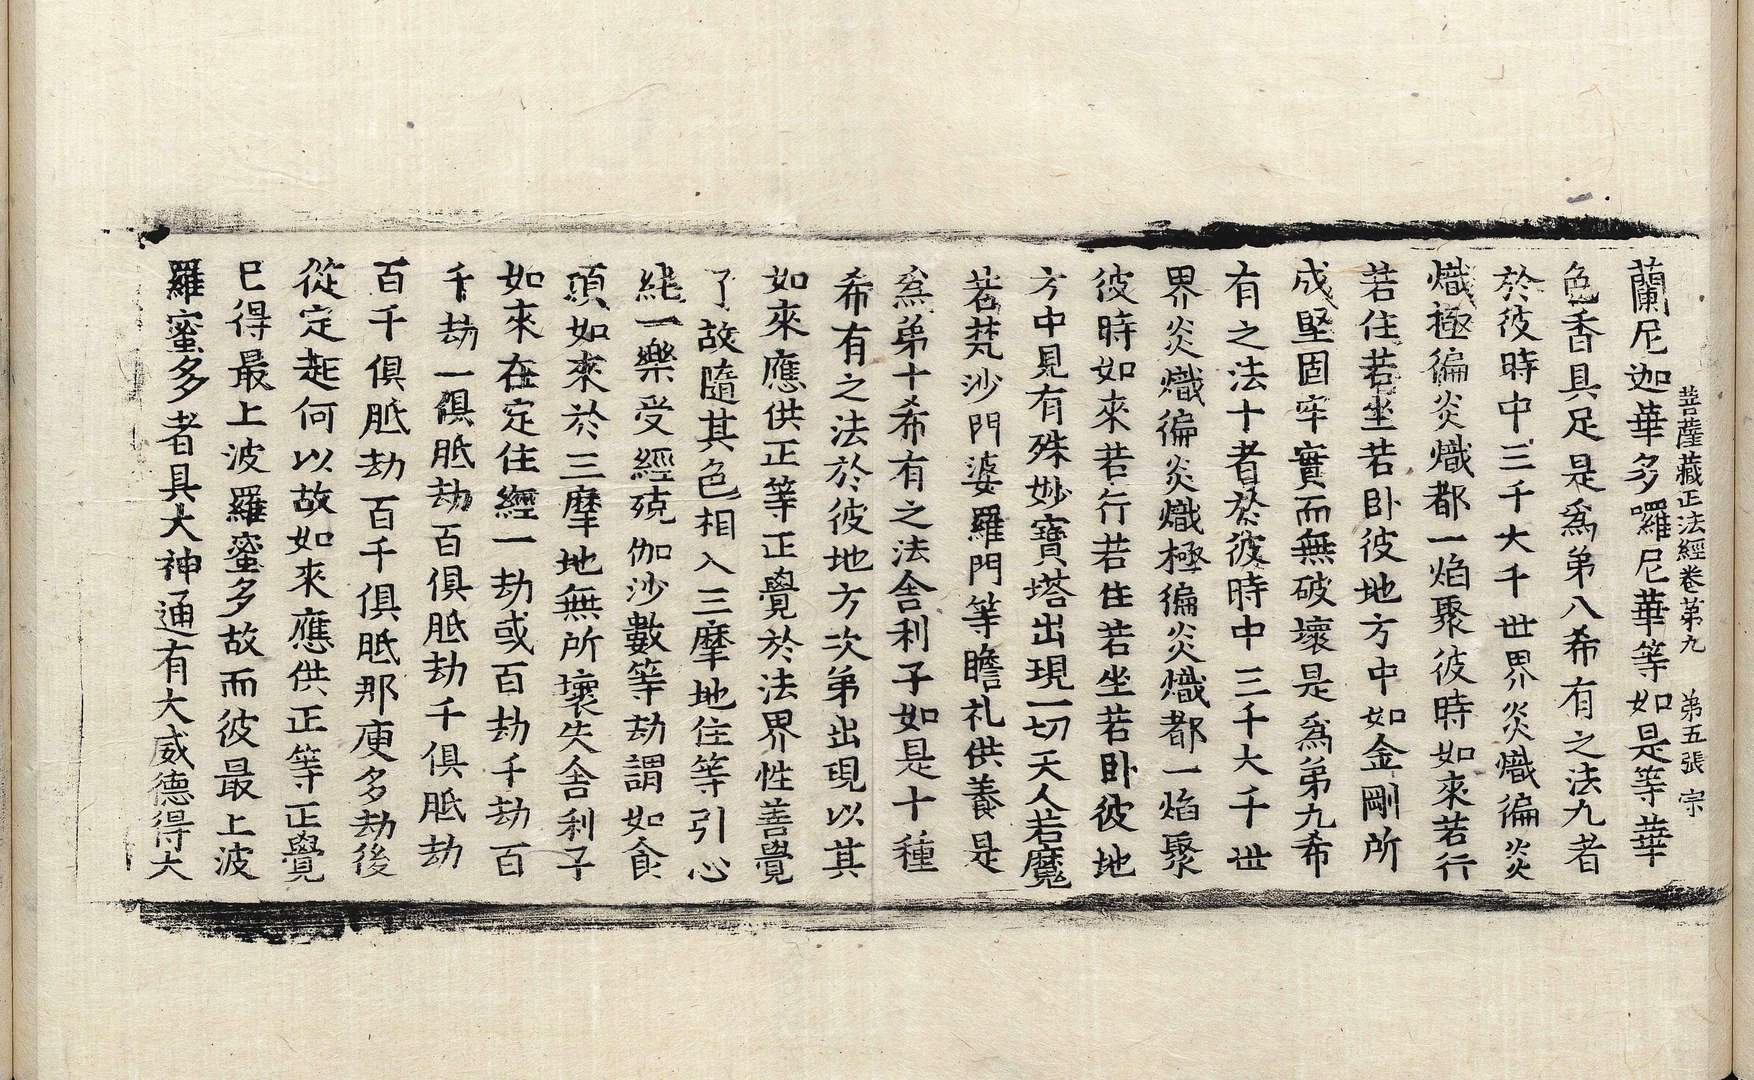 菩薩藏正法經卷第九　第五張　宗
蘭尼迦華多囉尼華等如是等華
色香具足是爲弟八希有之法九者
於彼時中三千大千世界炎熾徧炎
熾極徧炎熾都一焰聚彼時如來若行
若住若坐若卧彼地方中如金剛所
成堅固牢實而無破壞是爲弟九希
有之法十者於彼時中三千大千世
界炎熾徧炎熾極徧炎熾都一焰聚
彼時如來若行若住若坐若卧彼地
方中見有殊妙寶塔出現一切天人若魔
若梵沙門婆羅門等瞻礼供養是
爲弟十希有之法舍利子如是十種
希有之法於彼地方次弟出現以其
如來應供正等正覺於法界性善覺
了故隨其色相入三摩地住等引心
継一樂受經殑伽沙數等劫謂如食
頃如來於三摩地無所壞失舍利子
如來在定住經一劫或百劫千劫百
千劫一俱胝劫百俱胝劫千俱胝劫
百千俱胝劫百千俱胝那庾多劫後
從定起何以故如來應供正等正覺
已得最上波羅蜜多故而彼最上波
羅蜜多者具大神通有大威德得大